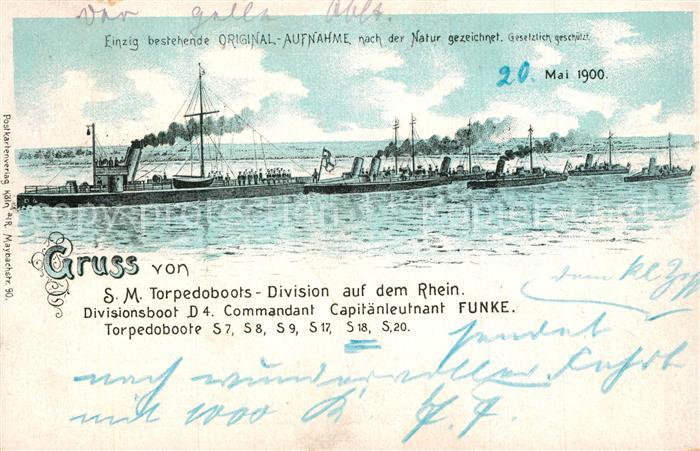 Einzig bestehende ORIGINAL-AUFNAHME, nach der Natur gezeichnet. Gesetzlich geschützt.
20. Mai 1900.
Postkartenverlag Köln a/R, Maybachstr. 90.
Gruss von
S. M. Torpedoboots-Division auf dem Rhein.
Divisionsboot D 4. Commandant Capitänleutnant FUNKE.
Torpedoboote S 7, S 8, S 9, S 17, S 18, S, 20.
sendet
nach wundervoller Fahrt
mit 1000 K.